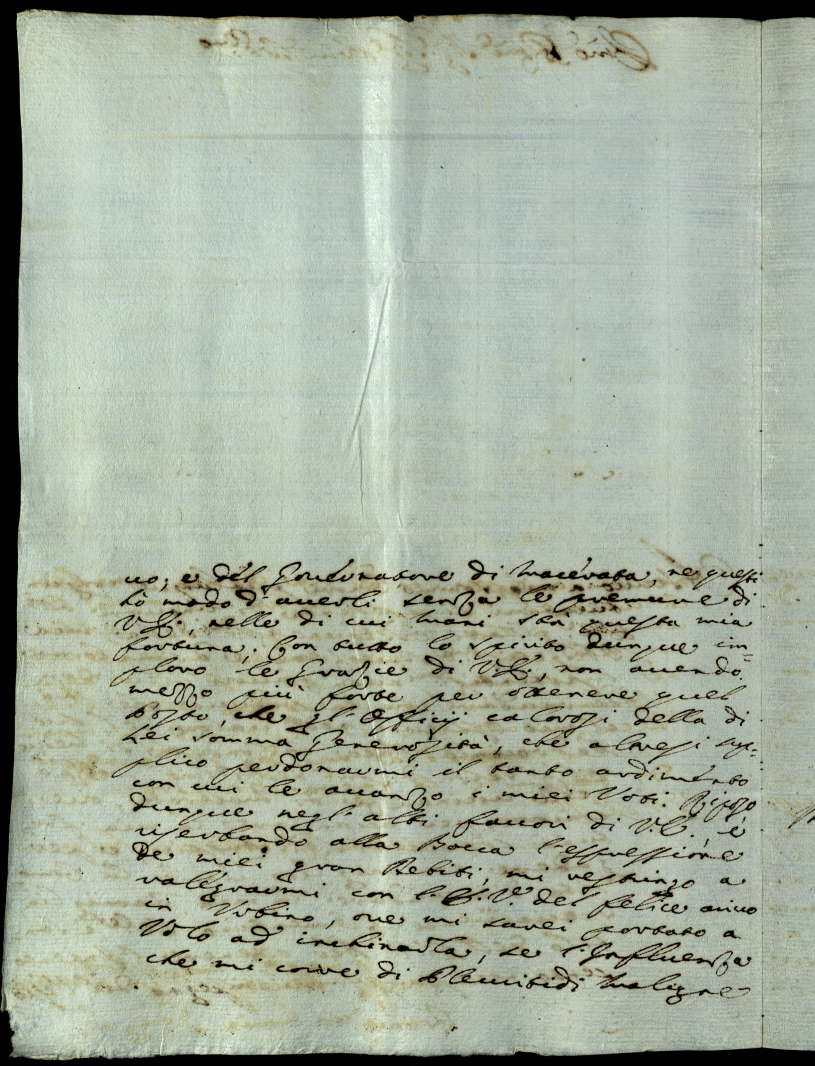 uo; e del Gouernatore di Macerata, ne questi
hò modo d'auerli senza le premure di
V.E., nelle di cui Mani stà questa mia
fortuna; Con tutto lo spirito dunque im-
ploro le Grazie di V.E., non auendo
mezzo più forte per ottenere quel
Posto, che gl'Officij calorosi della di
Lei somma Generosità, che altresi sup-
plico perdonarmi il tanto ardimento
con cui le auanzo i miei Voti.
dunque negl'alti fauori di V.E. e
riserbando alla Bocca l'espressione
de miei gran Debiti, mi restringo a
rallegrarmi con l' del felice arriuo
in Vrbino, oue mi sarei portato a
Volo ad inchinarla, se l'Influenza
che mi corre di maligne